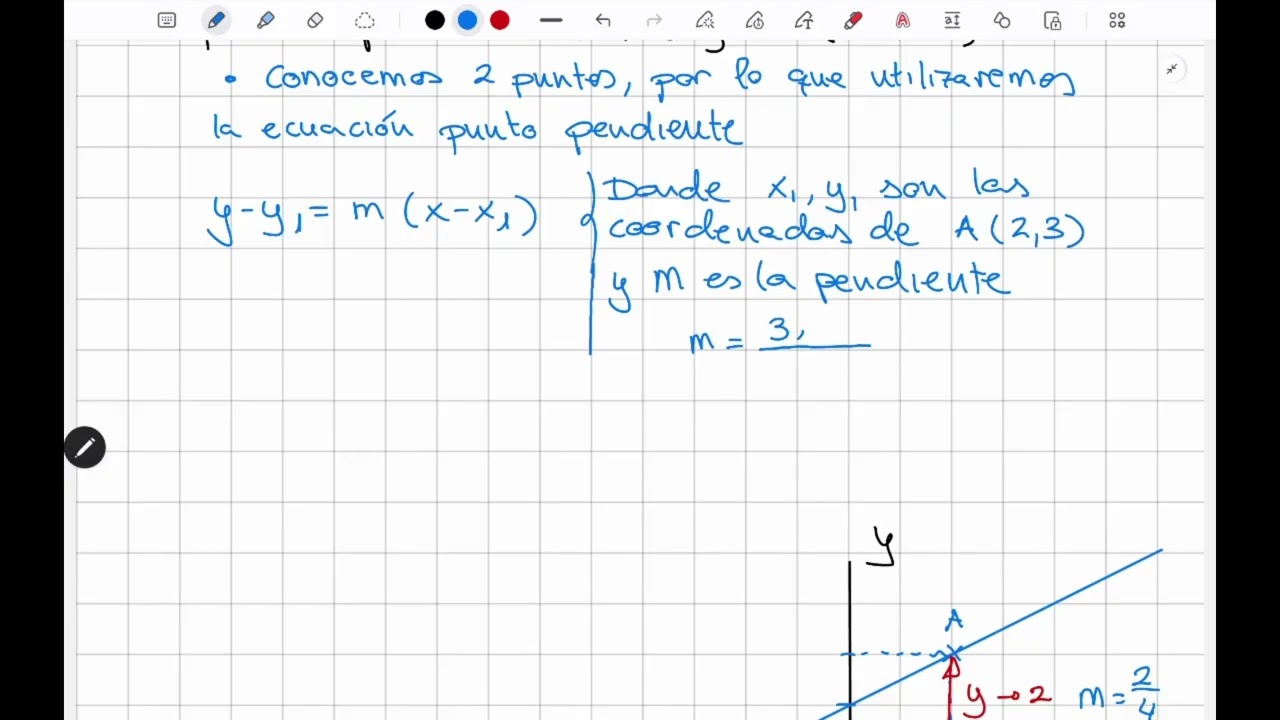 • Conocemos 2 puntos, por lo que utilizaremos
la ecuación punto pendiente
y-y₁ = m (x-x₁)
Donde x₁, y₁ son las
coordenadas de A(2,3)
y m es la pendiente
m = 3,
y
A
y→2
m = 2/4